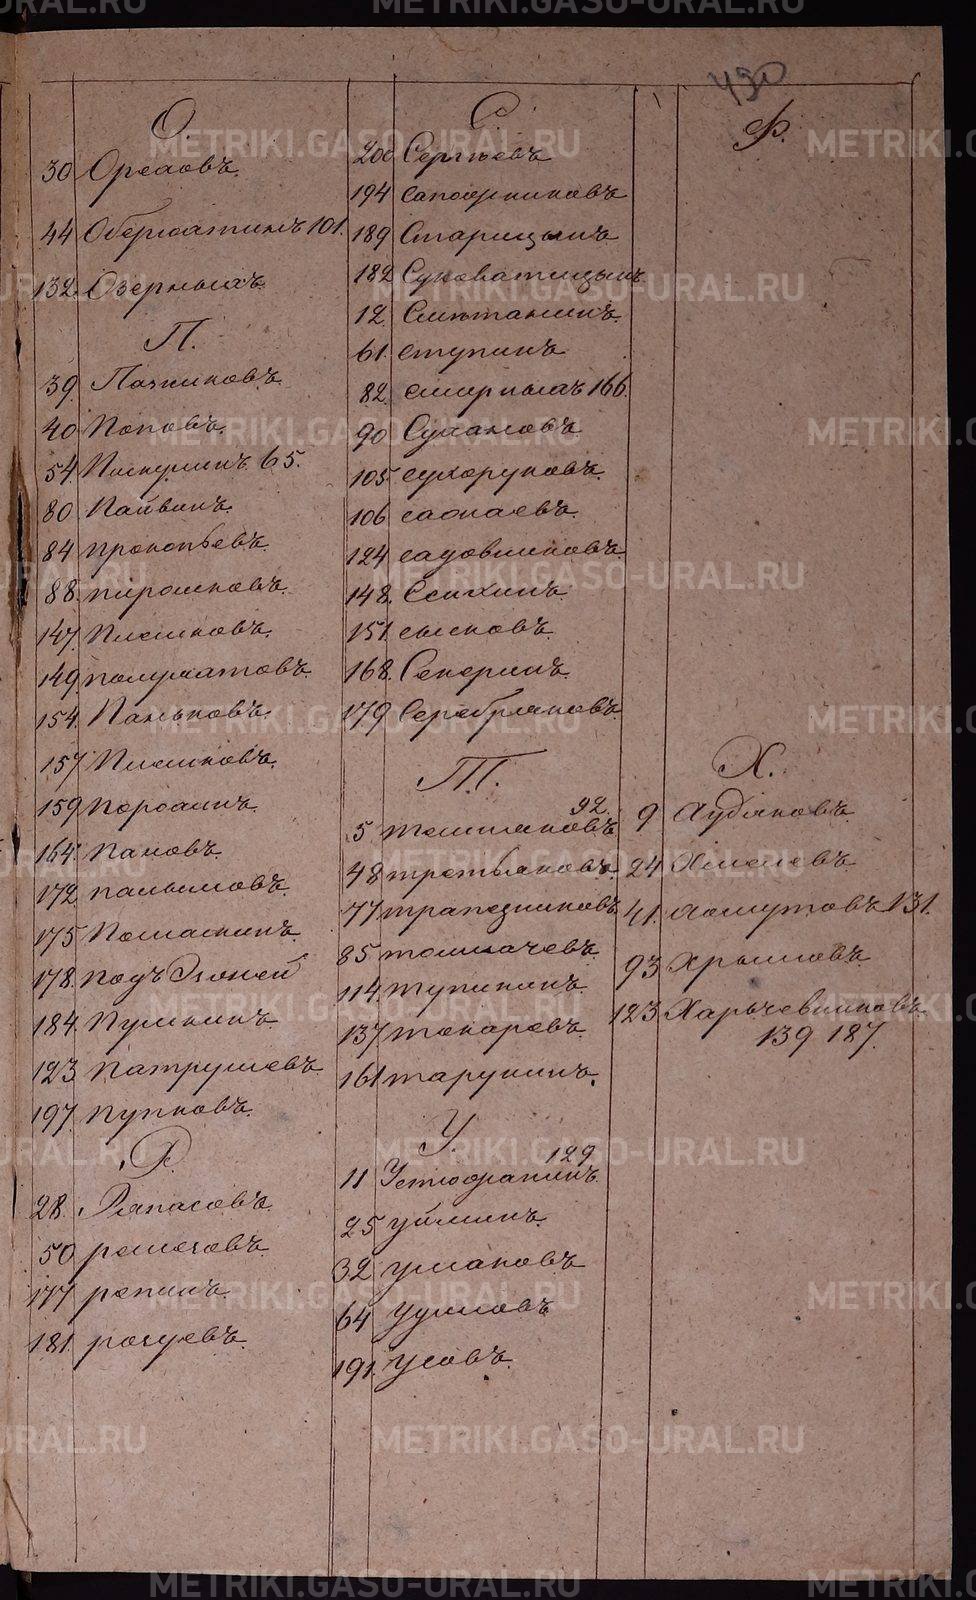 430
О.
30 Орловъ.
44 Оберюхтинъ 101.
132 Озерныхъ.
П.
39. Пачниковъ.
40 Поповъ.
54 Пискулинъ 65.
80 Пайвинъ.
84 Прокопьевъ.
88. Пирожковъ.
147. Плешковъ.
149 Полуматовъ.
154. Паньковъ.
157 Плешковъ.
159 Поромнъ.
164 Пановъ.
172
175 Помаскинъ.
178. Подъ Эгоней
184. Пушкинъ
193 Патрушевъ.
197. Пупковъ.
Р.
28. Рапасовъ.
50 Решетовъ.
177 Репинъ.
181. Рогуевъ.
С.
200 Сергѣевъ
194 Сапожниковъ
189 Старицынъ
182 Суковатицынъ
12. Смѣтанинъ.
61. Ступинъ
82. Смирныхъ 166.
90 Сухановъ.
105 Сухоруковъ.
106
124 Садовниковъ.
148. Сенкинъ.
151. Сысковъ.
168. Секеринъ.
179 Серебряковъ.
Т.
92.
5 Томиловъ
48 Третьяковъ.
77 Трапезниковъ
85 Толмачевъ.
114. Тупикинъ.
137 Токаревъ.
161 Тарункинъ.
У.
129
11 Устюжанинъ.
25 Уйминъ.
32 Ушаковъ
64
191. Усовъ.
Ф.
Х.
9 Худяковъ.
24 Хмелевъ
41. Хомутовъ 131.
93 Хрымовъ.
123 Харчевниковъ.
139 187.
METRIKI.GASO-URAL.RU